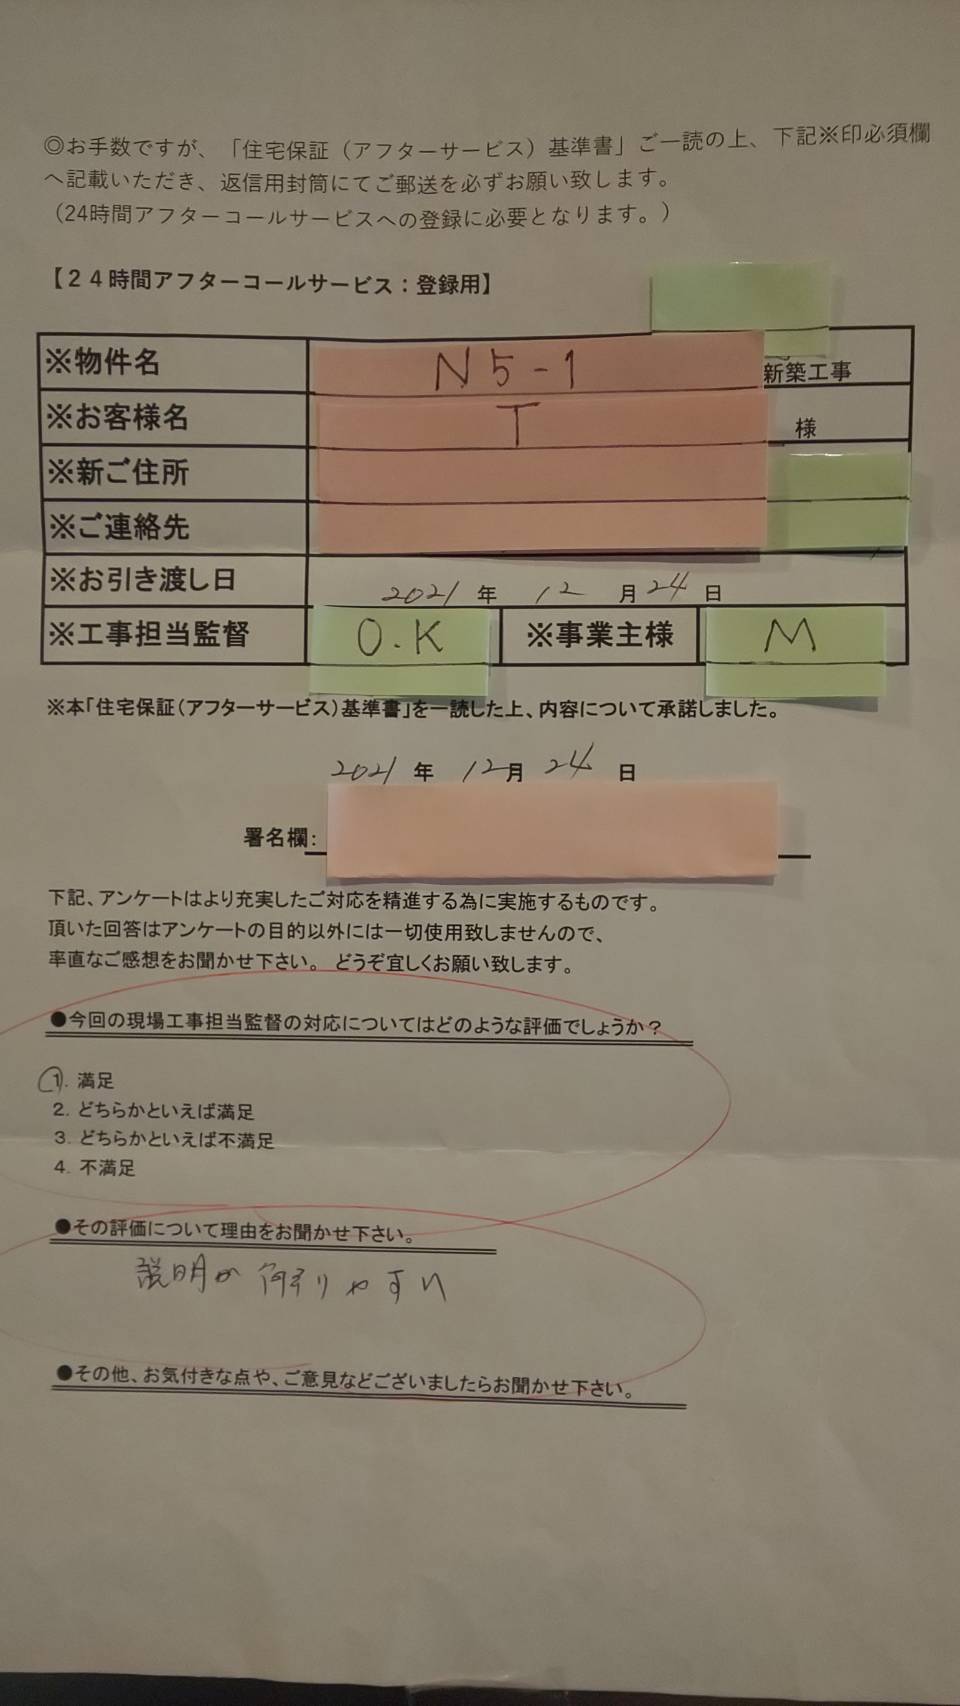 ◎お手数ですが、「住宅保証（アフターサービス）基準書」ご一読の上、下記※印必須欄
へ記載いただき、返信用封筒にてご郵送を必ずお願い致します。
（24時間アフターコールサービスへの登録に必要となります。）
【２４時間アフターコールサービス：登録用】
※物件名 N5-1 新築工事
※お客様名 T 様
※新ご住所
※ご連絡先
※お引き渡し日 2021年 12月24日
※工事担当監督 O.K ※事業主様 M
※本「住宅保証（アフターサービス）基準書」を一読した上、内容について承諾しました。
2021年 12月 24日
署名欄：
下記、アンケートはより充実したご対応を精進する為に実施するものです。
頂いた回答はアンケートの目的以外には一切使用致しませんので、
率直なご感想をお聞かせ下さい。 どうぞ宜しくお願い致します。
●今回の現場工事担当監督の対応についてはどのような評価でしょうか？
1. 満足
2. どちらかといえば満足
3. どちらかといえば不満足
4. 不満足
●その評価について理由をお聞かせ下さい。
説明が解りやすい
●その他、お気付きな点や、ご意見などございましたらお聞かせ下さい。